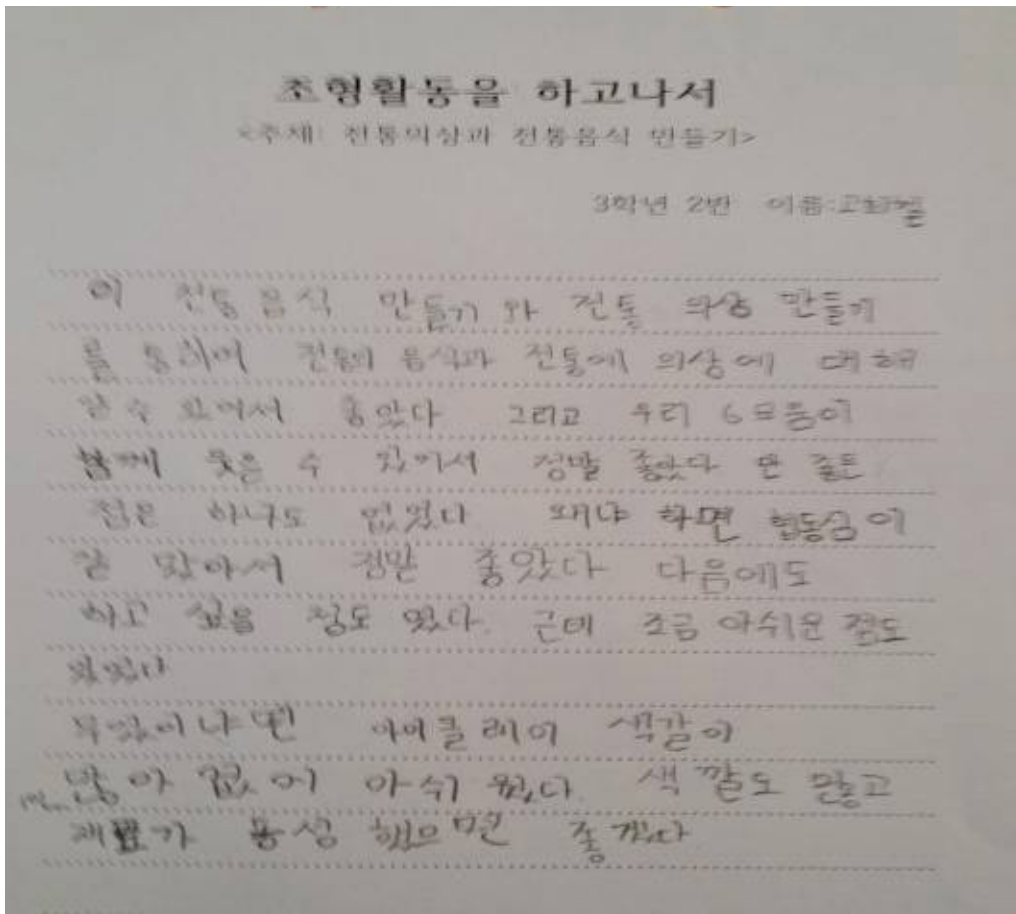 조형활동을 하고나서
<주제: 전통의상과 전통음식 만들기>
3학년 2반 이름:
이 전통 음식 만들기 와 전통 의상 만들기
를 통하여 전통의 음식과 전통에 의상에 대해
알 수 있어서 좋았다 그리고 우리 6모둠이
함께 웃을 수 있어서 정말 좋았다 안 좋은
점은 하나도 없었다 왜냐 하면 협동심이
잘 맞아서 정말 좋았다 다음에도
하고 싶을 정도 였다. 근데 조금 아쉬운 점도
있었다
무엇이냐면 아이클레이 색갈이
많아 없어 아쉬 웠다. 색깔도 많고
재료가 풍성 했으면 좋겠다